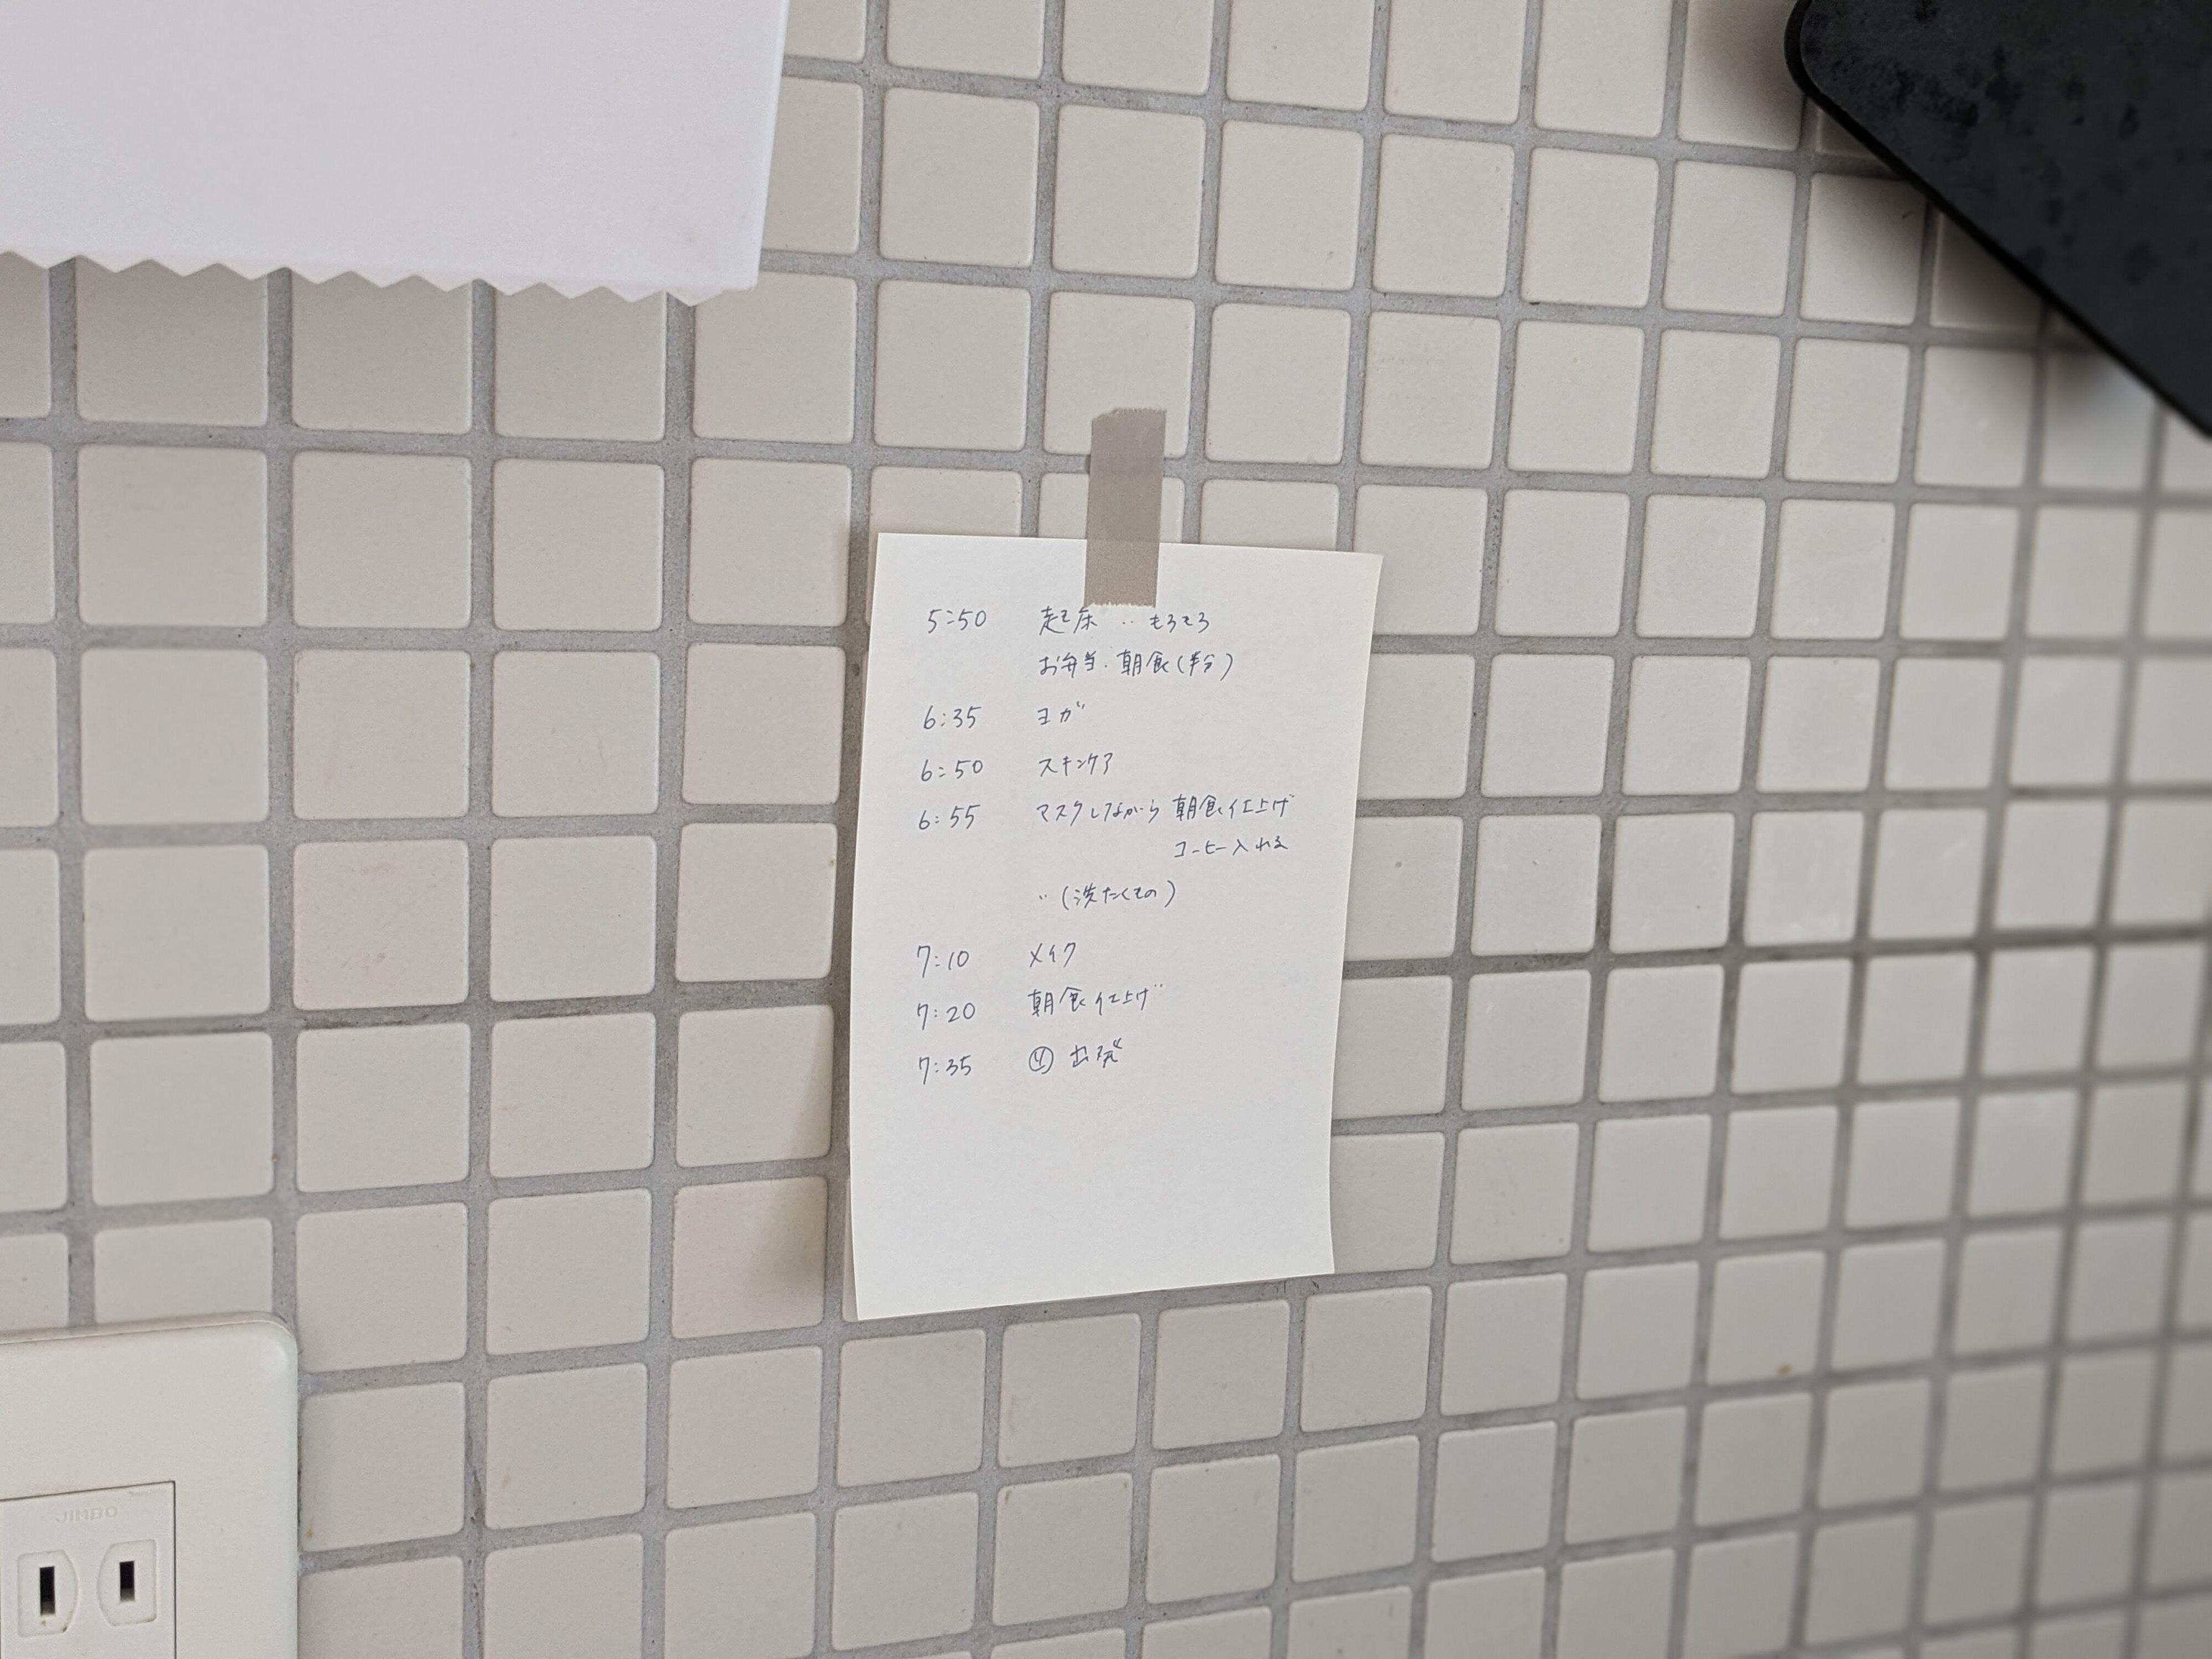 5:50 起床 ‥ もろもろ
お弁当・朝食(半分)
6:35 ヨガ
6:50 スキンケア
6:55 マスクしながら 朝食仕上げ
コーヒー入れる
〃 (洗たくもの)
7:10 メイク
7:20 朝食仕上げ
7:35 出発
JIMBO